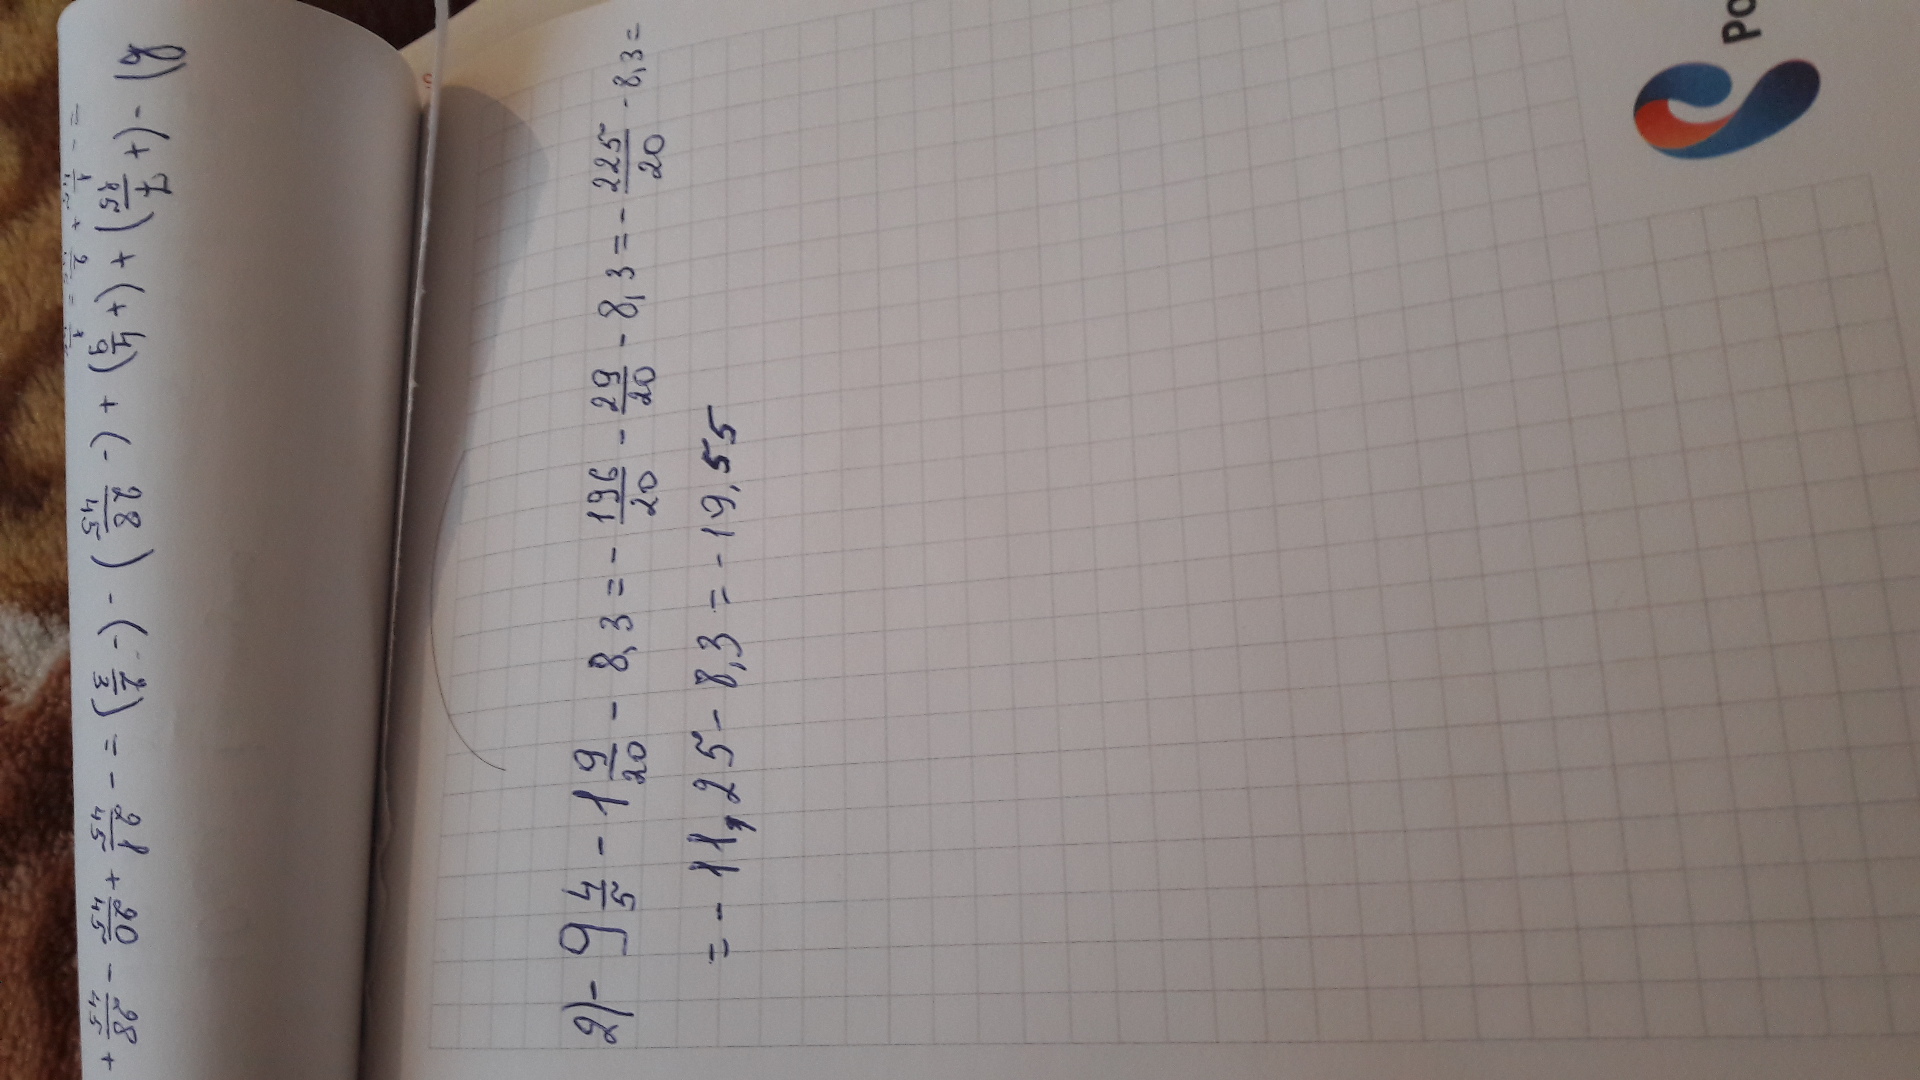 в) - (+ 7/15) + (+ 4/9) + (- 28/45) - (- 2/3) = - 21/45 + 20/45 - 28/45 +
2) - 9 4/5 - 1 9/20 - 8,3 = - 196/20 - 29/20 - 8,3 = - 225/20 - 8,3 =
= - 11,25 - 8,3 = - 19,55
Ро